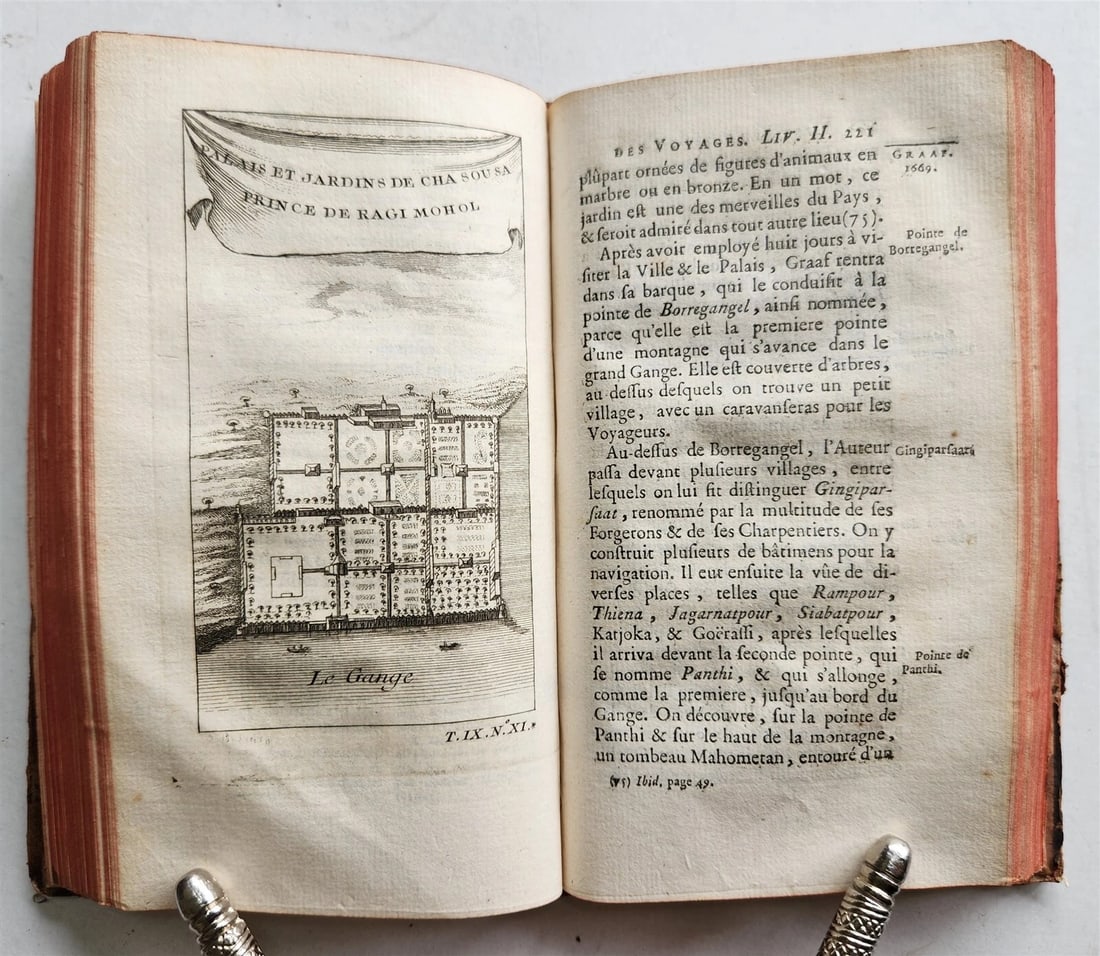 PALAIS ET JARDINS DE CHA SOUSA
PRINCE DE RAGI MOHOL
Le Gange
T. IX. N.º XI.
DES VOYAGES. LIV. II. 221
GRAAF.
1669.
plûpart ornées de figures d'animaux en
marbre ou en bronze. En un mot, ce
jardin est une des merveilles du Pays,
& seroit admiré dans tout autre lieu (75).
Après avoir employé huit jours à vi-
siter la Ville & le Palais, Graaf rentra
dans sa barque, qui le conduisit à la
pointe de Borregangel, ainsi nommée,
parce qu'elle est la premiere pointe
d'une montagne qui s'avance dans le
grand Gange. Elle est couverte d'arbres,
au-dessus desquels on trouve un petit
village, avec un caravanseras pour les
Voyageurs.
Pointe de
Borregangel.
Au-dessus de Borregangel, l'Auteur
passa devant plusieurs villages, entre
lesquels on lui fit distinguer Gingipar-
saat, renommé par la multitude de ses
Forgerons & de ses Charpentiers. On y
construit plusieurs de bâtimens pour la
navigation. Il eut ensuite la vûe de di-
verses places, telles que Rampour,
Thiena, Jagarnatpour, Siabatpour,
Katjoka, & Goërassi, après lesquelles
il arriva devant la seconde pointe, qui
se nomme Panthi, & qui s'allonge,
comme la premiere, jusqu'au bord du
Gange. On découvre, sur la pointe de
Panthi & sur le haut de la montagne,
un tombeau Mahometan, entouré d'un
Gingiparsaat.
Pointe de
Panthi.
(75) Ibid. page 49.